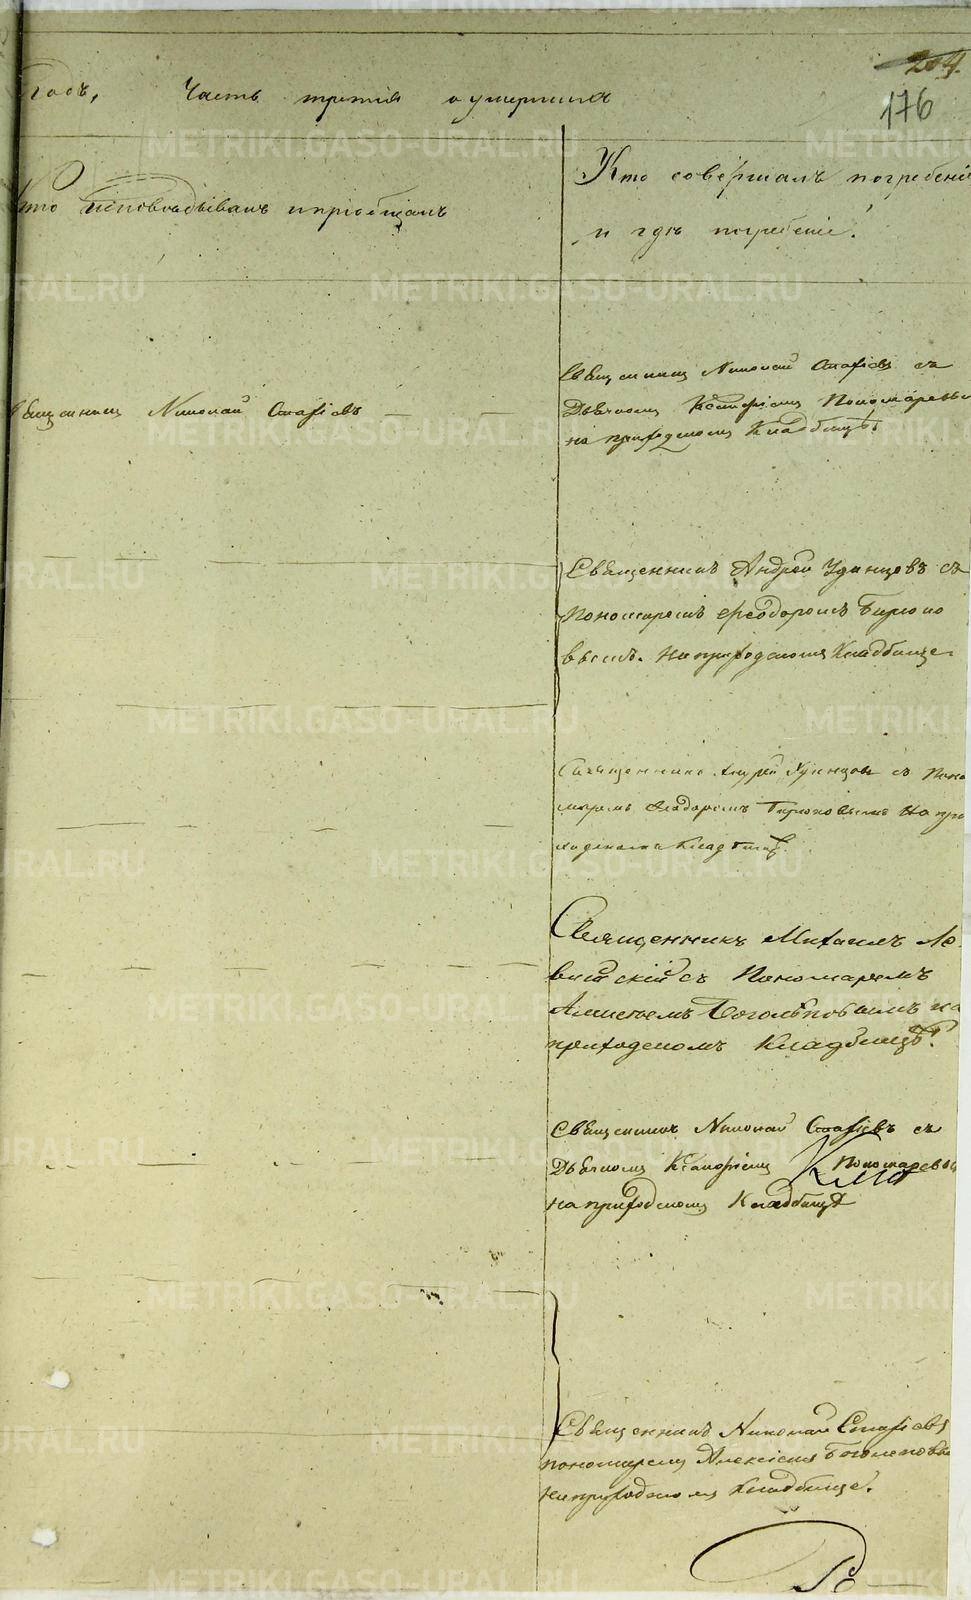 204.
176
Годъ, Часть третія о умершихъ
Кто исповѣдывалъ и пріобщалъ
Кто совершалъ погребеніе
и гдѣ погребены.
Священникъ Николай Стафіевъ
Священникъ Николай Стафіевъ съ
Дьячкомъ Пономаревы
на приходскомъ Кладбищѣ.
Священникъ Андрей Удинцовъ съ
Пономаремъ Феодоромъ Бирюко
вымъ. На приходскомъ Кладбище
Священникъ Андрей Удинцовъ съ Поно
маремъ Феодоромъ Бирюковымъ На при
ходскомъ Кладбищѣ.
Священникъ Михаилъ Ле
витскій съ Пономаремъ
Алексѣемъ Боголѣповымъ на
приходскомъ Кладбищѣ.
Священникъ Николай Стафіевъ съ
Дьячкомъ Пономаревы
на приходскомъ Кладбищѣ
Священникъ Николай Стафіевъ
пономаремъ Алексіемъ Боголеповы
На приходскомъ Кладбище.
METRIKI.GASO-URAL.RU